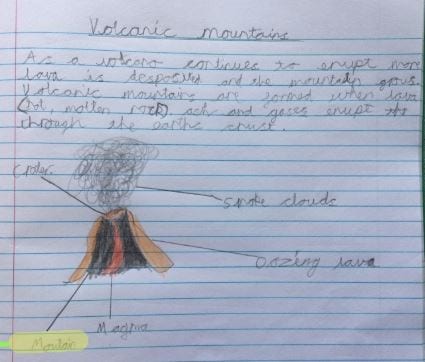 Volcanic mountains
As a volcano continues to erupt more
lava is desposited and the mountain grows.
Volcanic mountains are formed when lava
(hot, molten rock) ash and gases erupt
through the earths crust.
Crater.
Smoke clouds
Oozing lava
Magma